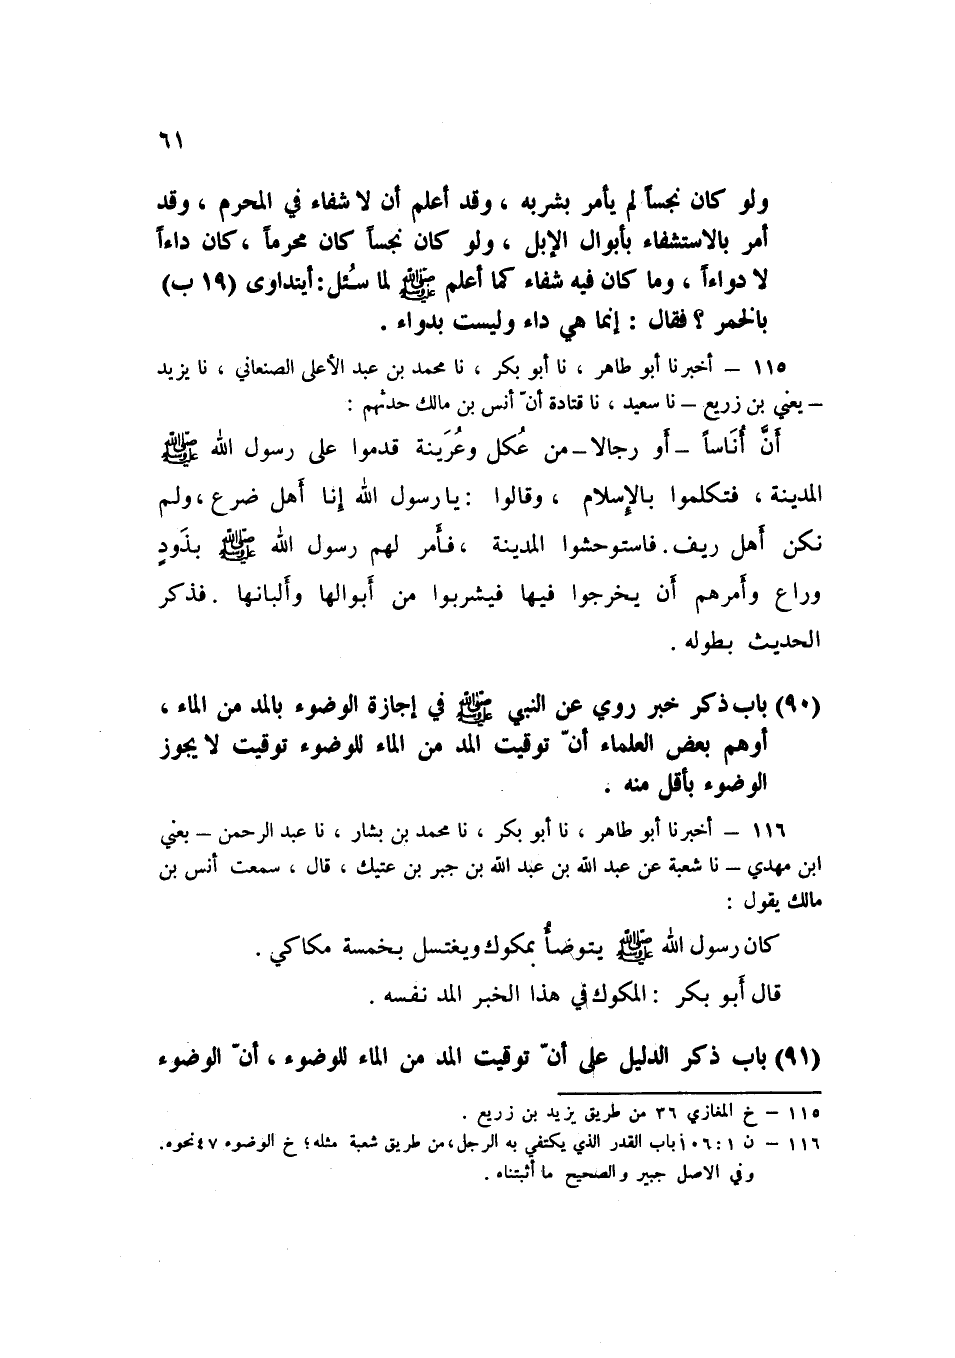 ٦١
ولو كان نجساً لم يأمر بشربه ، وقد أعلم أن لا شفاء في المحرم ، وقد
أمر بالاستشفاء بأبوال الإبل ، ولو كان نجساً كان محرماً ، كان داءاً
لا دواءاً ، وما كان فيه شفاء كما أعلم ﷺ لما سُئل : أيتداوى (١٩ ب)
بالخمر ؟ فقال : إنما هي داء وليست بدواء .
١١٥ – أخبرنا أبو طاهر ، نا أبو بكر ، نا محمد بن عبد الأعلى الصنعاني ، نا يزيد
– يعني بن زريع – نا سعيد ، نا قتادة أنّ أنس بن مالك حدثهم :
أَنَّ أُنَاساً – أَو رجالا – من عُكل وعُرَينة قدموا على رسول الله ﷺ
المدينة ، فتكلموا بالإِسلام ، وقالوا : يا رسول الله إِنا أَهل ضرع ، ولم
نكن أَهل ريف . فاستوحشوا المدينة ، فأَمر لهم رسول الله ﷺ بذَودٍ
وراع وأَمرهم أَن يخرجوا فيها فيشربوا من أَبوالها وأَلبانها . فذكر
الحديث بطوله .
(٩٠) باب ذكر خبر روي عن النبي ﷺ في إجازة الوضوء بالمد من الماء ،
أوهم بعض العلماء أنّ توقيت المد من الماء للوضوء توقيت لا يجوز
الوضوء بأقل منه .
١١٦ – أخبرنا أبو طاهر ، نا أبو بكر ، نا محمد بن بشار ، نا عبد الرحمن – يعني
ابن مهدي – نا شعبة عن عبد الله بن عبد الله بن جبر بن عتيك ، قال ، سمعت أنس بن
مالك يقول :
كان رسول الله ﷺ يتوضأُ بمكوك ويغتسل بخمسة مكاكي .
قال أَبو بكر : المكوك في هذا الخبر المد نفسه .
(٩١) باب ذكر الدليل على أنّ توقيت المد من الماء للوضوء ، أنّ الوضوء
١١٥ – خ المغازي ٣٦ من طريق يزيد بن زريع .
١١٦ – ن ١ : ١٠٦ باب القدر الذي يكتفي به الرجل ، من طريق شعبة مثله ؛ خ الوضوء ٤٧ نحوه .
وفي الاصل جبير والصحيح ما أثبتناه .